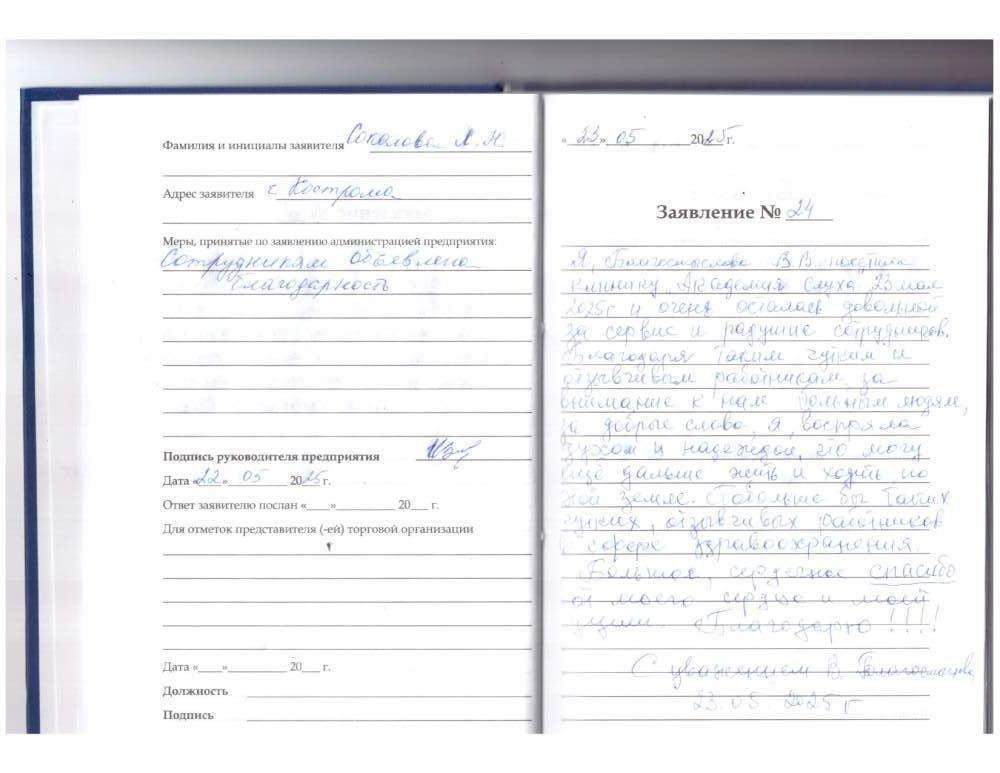 Фамилия и инициалы заявителя Соколова Л. Н.
Адрес заявителя г. Кострома
Меры, принятые по заявлению администрацией предприятия:
Сотрудникам объявлена
благодарность
Подпись руководителя предприятия
Дата «22» 05 2025 г.
Ответ заявителю послан «___» __________ 20___ г.
Для отметок представителя (-ей) торговой организации
Дата «___» __________ 20___ г.
Должность
Подпись
«23» 05 2025 г.
Заявление № 24
Я, В.В. посетила
клинику "Академия слуха 23 мая
2025г и очень осталась довольной
за сервис и радушие сотрудников.
Благодаря таким чутким и
отзывчивым работникам, за
внимание к нам больным людям,
за добрые слова, я, воспряла
духом и надеждой, что могу
ещё дальше жить и ходить по
земле. Побольше бы таких
чутких, отзывчивых работников
в сфере здравоохранения.
Большое, сердечное спасибо
от моего сердца и моей
души. Благодарю !!!!
С уважением В.
23.05.2025 г